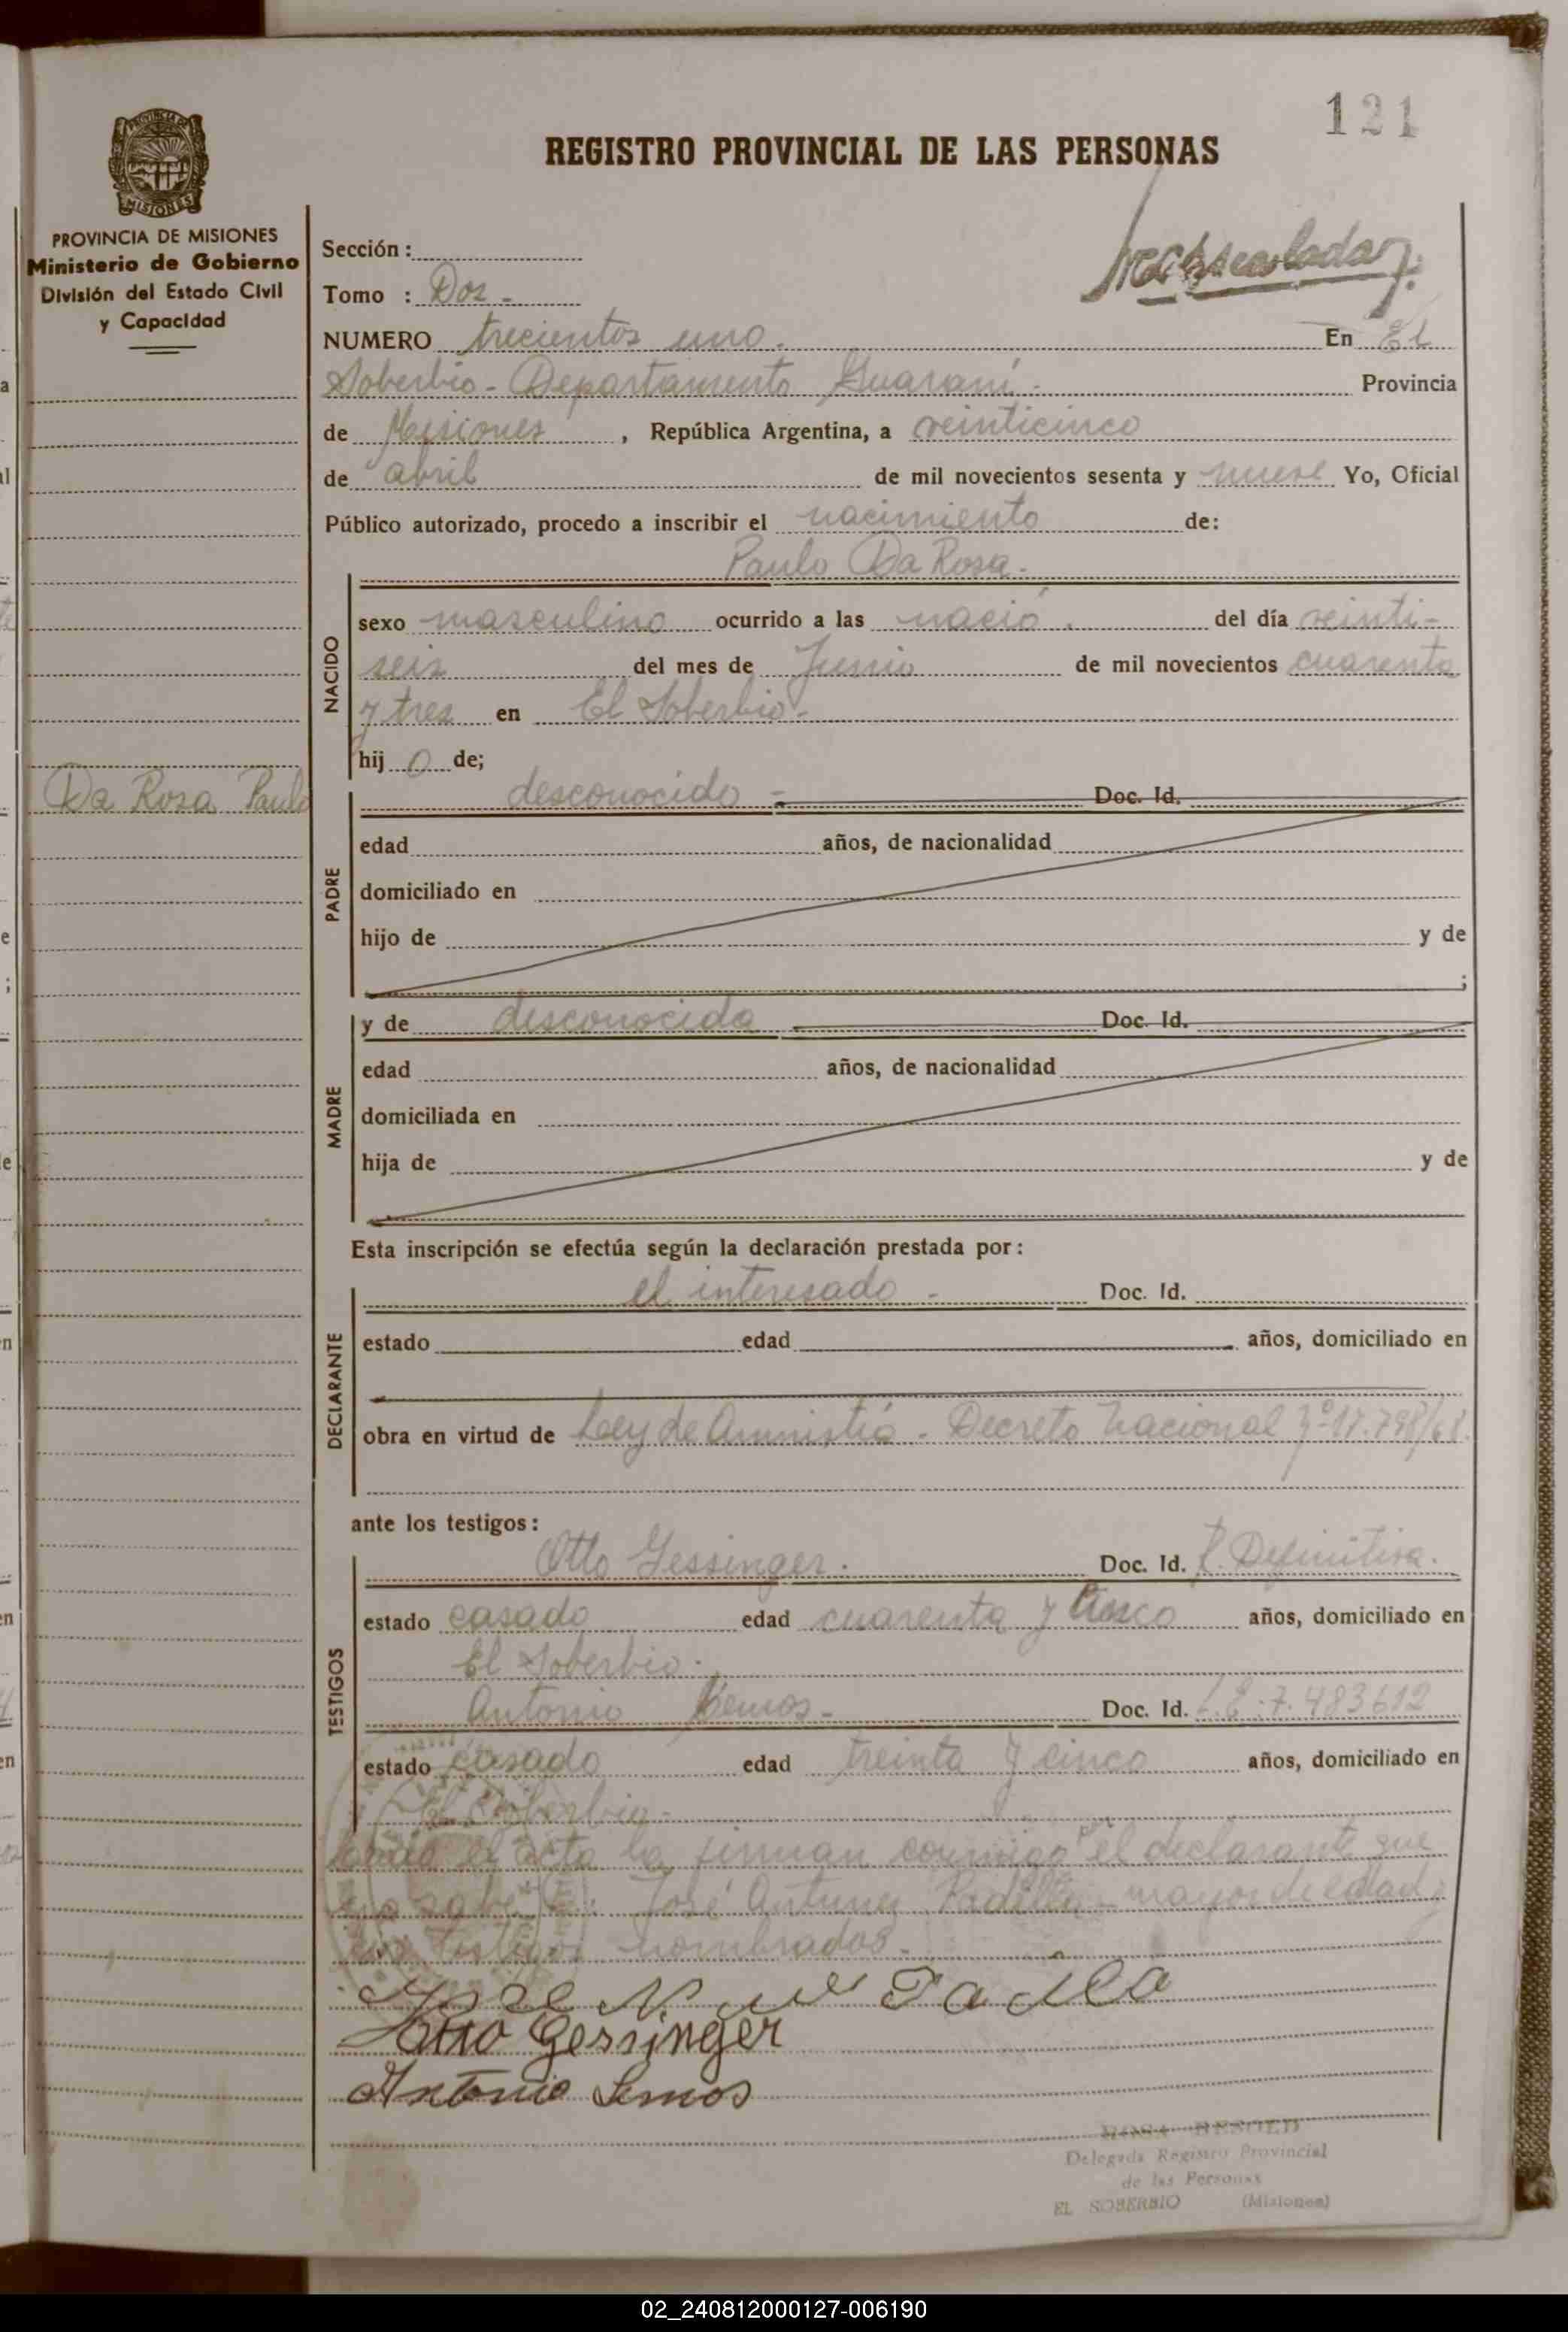 121
REGISTRO PROVINCIAL DE LAS PERSONAS
PROVINCIA DE MISIONES
Ministerio de Gobierno
División del Estado Civil
y Capacidad
Sección :
Tomo : Dos -
NUMERO trecientos uno. En El
Soberbio - Departamento Guaraní - Provincia
de Misiones , República Argentina, a veinticinco
de abril de mil novecientos sesenta y nueve Yo, Oficial
Público autorizado, procedo a inscribir el nacimiento de:
Paulo Da Rosa.
NACIDO
sexo masculino ocurrido a las nació . del día veinti-
seis del mes de Junio de mil novecientos cuarenta
y tres en El Soberbio -
hij o de;
Da Rosa Paulo
PADRE
desconocido - Doc. Id.
edad años, de nacionalidad
domiciliado en
hijo de y de
;
MADRE
y de desconocida Doc. Id.
edad años, de nacionalidad
domiciliada en
hija de y de
Esta inscripción se efectúa según la declaración prestada por :
DECLARANTE
el interesado - Doc. Id.
estado edad años, domiciliado en
obra en virtud de Ley de Amnistía - Decreto Nacional 17.798/68.
ante los testigos :
TESTIGOS
Otto Gessinger. Doc. Id. Definitiva.
estado casado edad cuarenta y años, domiciliado en
El Soberbio.
Antonio Lemos - Doc. Id. L.E. 7.483612
estado casado edad treinta y cinco años, domiciliado en
El Soberbio -
el acta la firman conmigo el declarante que
José Antunez Padilla - mayor de edad y
testigos nombrados.
Jose Padilla
Otto Gessinger
Antonio Lemos
ROSA BESOLD
Delegada Registro Provincial
de las Personas
EL SOBERBIO (Misiones)
02_240812000127-006190